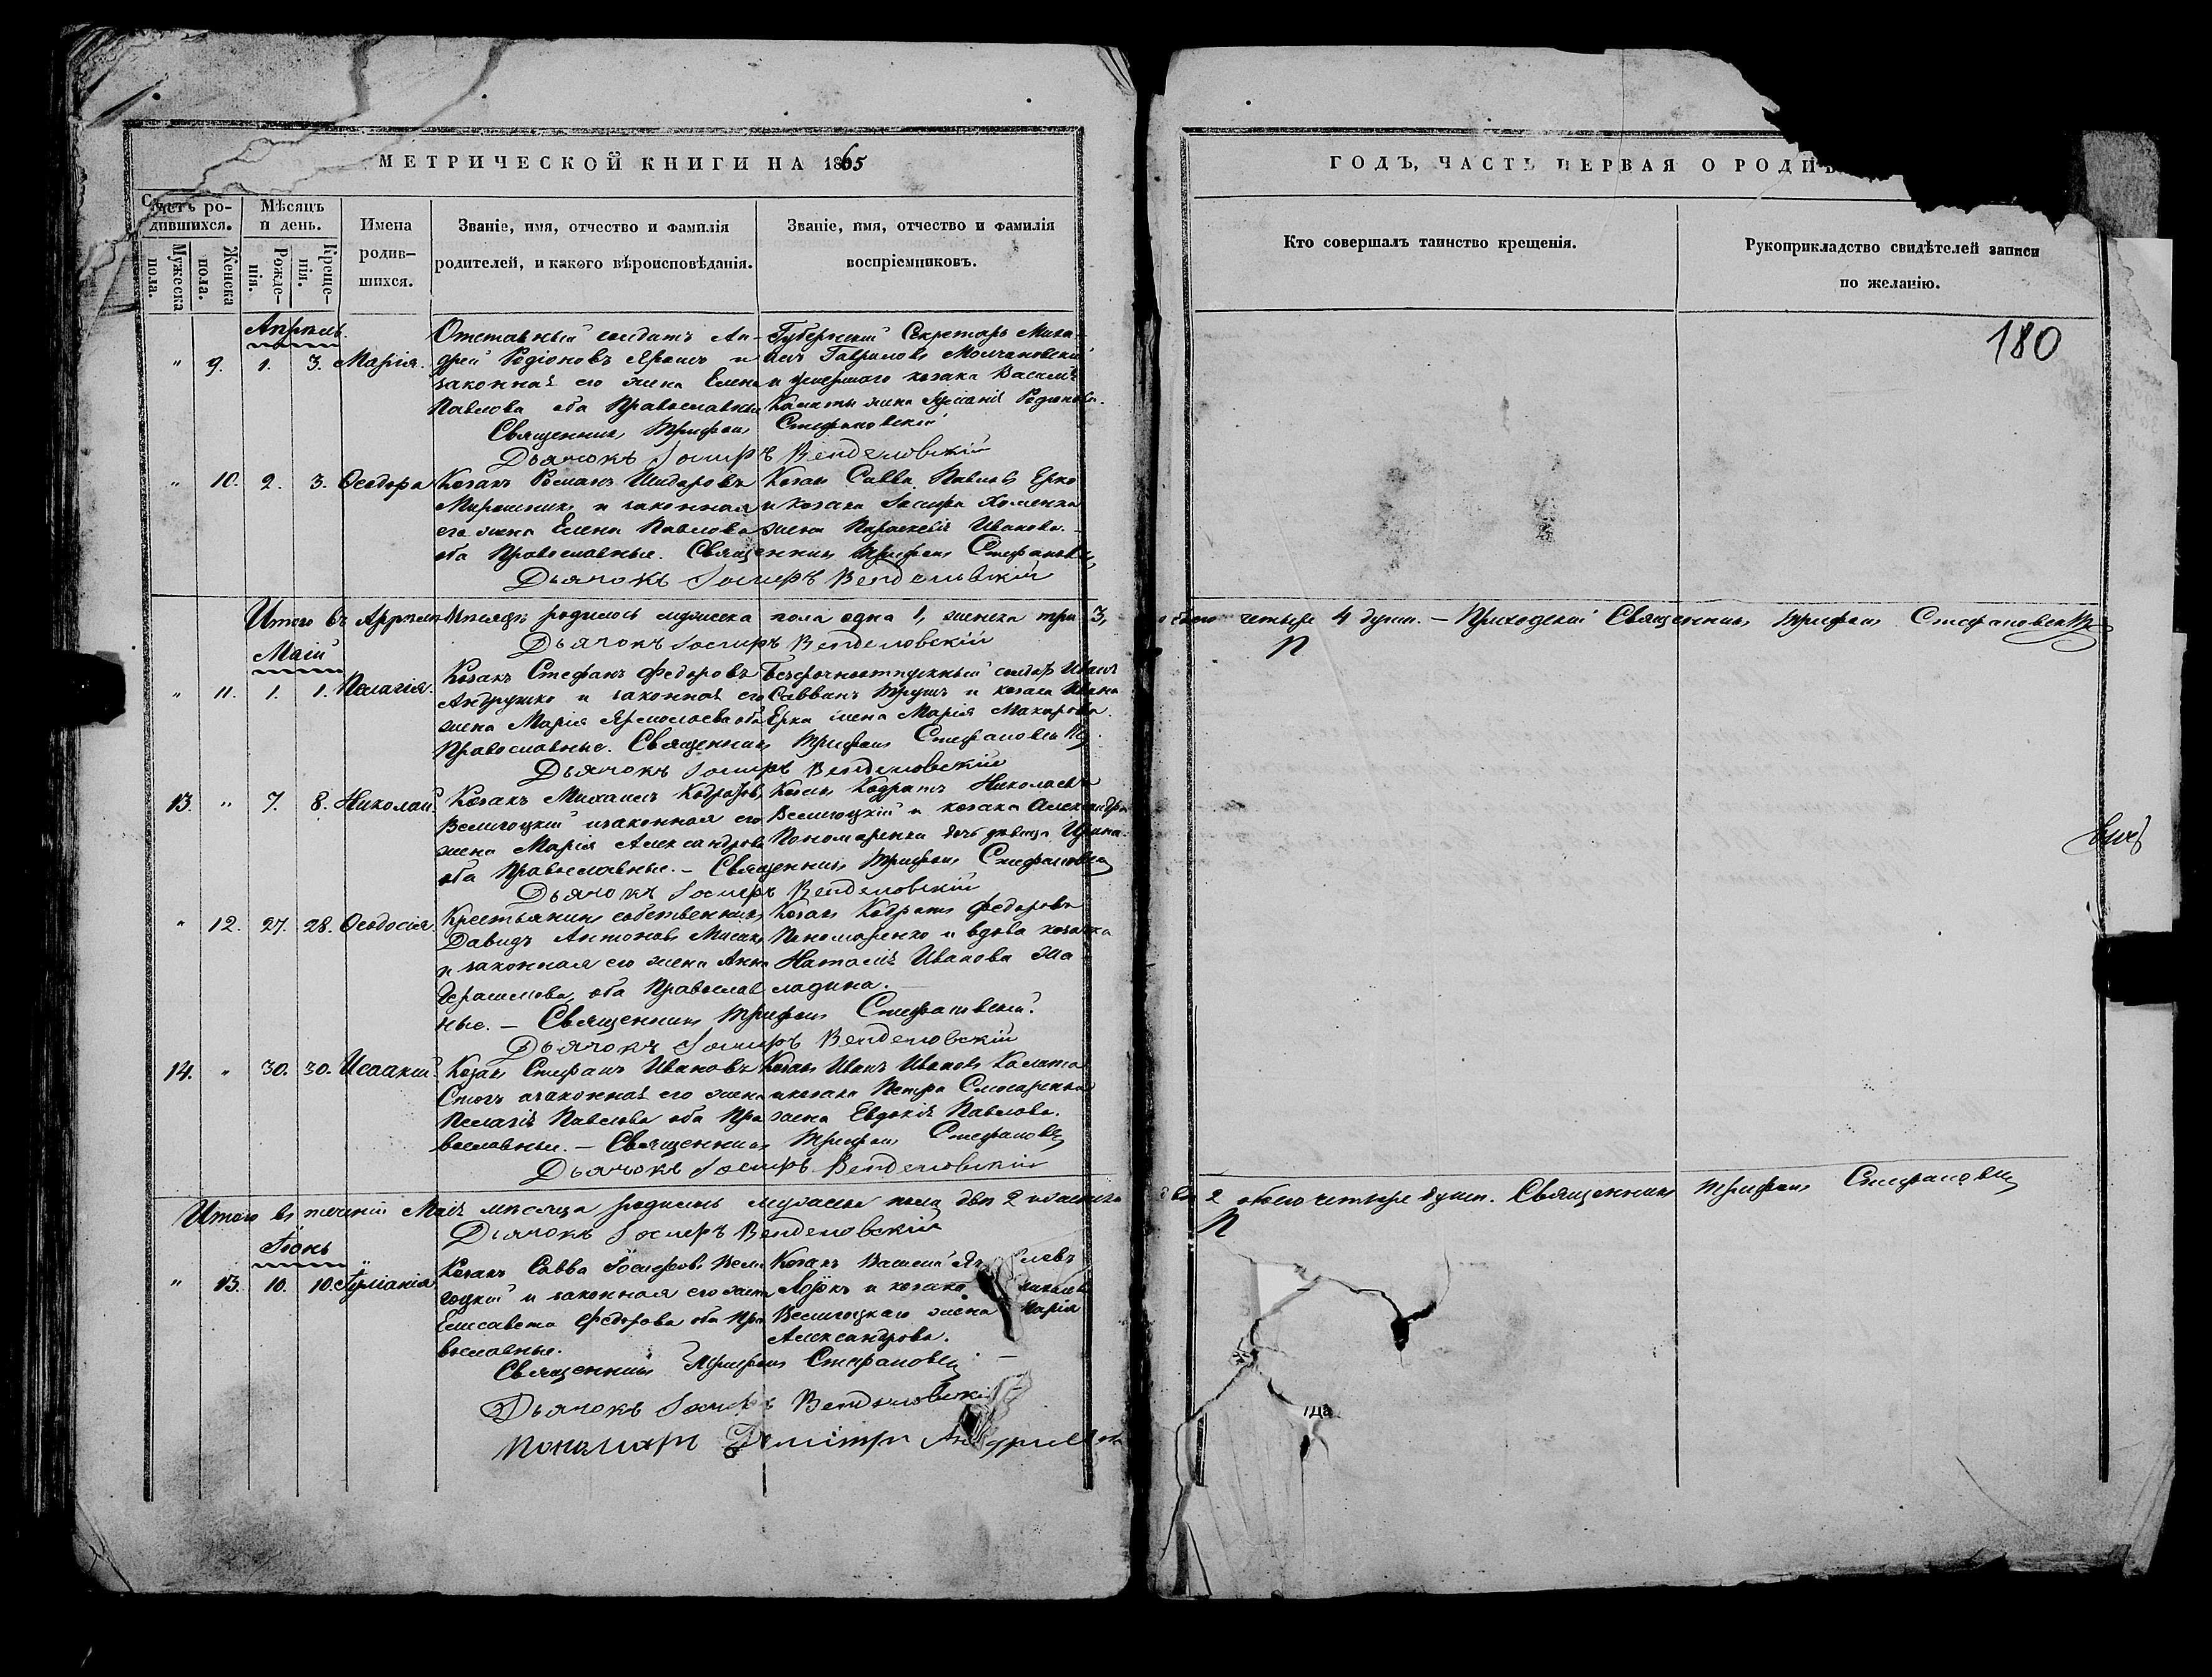 МЕТРИЧЕСКОЙ КНИГИ НА 1865
ГОДЪ, ЧАСТЬ ПЕРВАЯ О РОДИВ
Счетъ родившихся.
Мѣсяцъ и день.
Имена родив-
шихся.
Званіе, имя, отчество и фамилія
родителей, и какого вѣроисповѣданія.
Званіе, имя, отчество и фамилія
воспріемниковъ.
Мужеска пола.
Женска пола.
Рожде-
нія.
Креще-
нія.
Кто совершалъ таинство крещенія.
Рукоприкладство свидѣтелей записи
по желанію.
180
Апрѣль
" 9. 1. 3. Марія.
Отставный солдатъ Ан-
дрей Родіоновъ и
законная его жена Елена
Павлова оба Православные
Губернскій Секретарь Миха-
илъ Гавриловъ Молчановскій
и умершаго козака Василія
Калиты жена Іуліанія Родіонова.
Священникъ Трифонъ Стефановскій
Дьячокъ Іосифъ Венделовскій
" 10. 2. 3. Ѳеодора
Козакъ Романъ
Мирошникъ и законная
его жена Елена Павлова
оба Православные.
Козакъ Савва Павловъ Ерко
и козака Іосифа Хоменка
жена Параскевія Иванова.
Священникъ Трифонъ Стефановскій
Дьячокъ Іосифъ Венделовскій
Итого въ Апрѣлѣ мѣсяцѣ родилось мужеска пола одна 1, женска три 3,
обоего четыре 4 души. — Приходскій Священникъ Трифонъ Стефановскій
Дьячокъ Іосифъ Венделовскій
Маій
" 11. 1. 1. Пелагія.
Козакъ Стефанъ Федоровъ
Андрушко и законная его
жена Марія Ярмолаева оба
Православные.
Безсрочноотпускный солдатъ Иванъ
Саввинъ Трушъ и козака Ивана
Ерка жена Марія Макарова.
Священникъ Трифонъ Стефановскій
Дьячокъ Іосифъ Венделовскій
13. " 7. 8. Николай
Козакъ Михаилъ Кодратовъ
Велигоцкій и законная его
жена Марія Александрова
оба Православные. —
Козакъ Кодратъ Николаевъ
Велигоцкій и козака Александра
Пономаренка дочь дѣвица Ирина.
Священникъ Трифонъ Стефановскій
Дьячокъ Іосифъ Венделовскій
" 12. 27. 28. Ѳеодосія.
Крестьянинъ собственникъ
Давидъ Антоновъ
и законная его жена Анна
Герасимова, оба Православ
ные. —
Козакъ Кодратъ Федоровъ
Пономаренко и вдова козачка
Наталія Иванова Ма-
ладина. —
Священникъ Трифонъ Стефановскій.
Дьячокъ Іосифъ Венделовскій
14. " 30. 30. Исаакій.
Козакъ Стефанъ Ивановъ
Стогъ и законная его жена
Пелагія Павлова оба Пра
вославные. —
Козакъ Иванъ Ивановъ Калита
и козака Петра Слюсаренка
жена Евдокія Павлова.
Священникъ Трифонъ Стефановскій
Дьячокъ Іосифъ Венделовскій
Итого въ теченіи Маія мѣсяца родилось мужеска пола два 2 и женска
два 2 обоего четыре души. Священникъ Трифонъ Стефановскій
Дьячокъ Іосифъ Венделовскій
Іюнь
" 13. 10. 10. Іуліанія
Козакъ Савва Іосифовъ Вели
гоцкій и законная его жена
Елисавета Федорова оба Пра
вославные.
Козакъ Василій
и козака
Велигоцкаго жена Марія
Александрова.
Священникъ Трифонъ Стефановскій —
Дьячокъ Іосифъ Венделовскій
Пономарь Димітрій